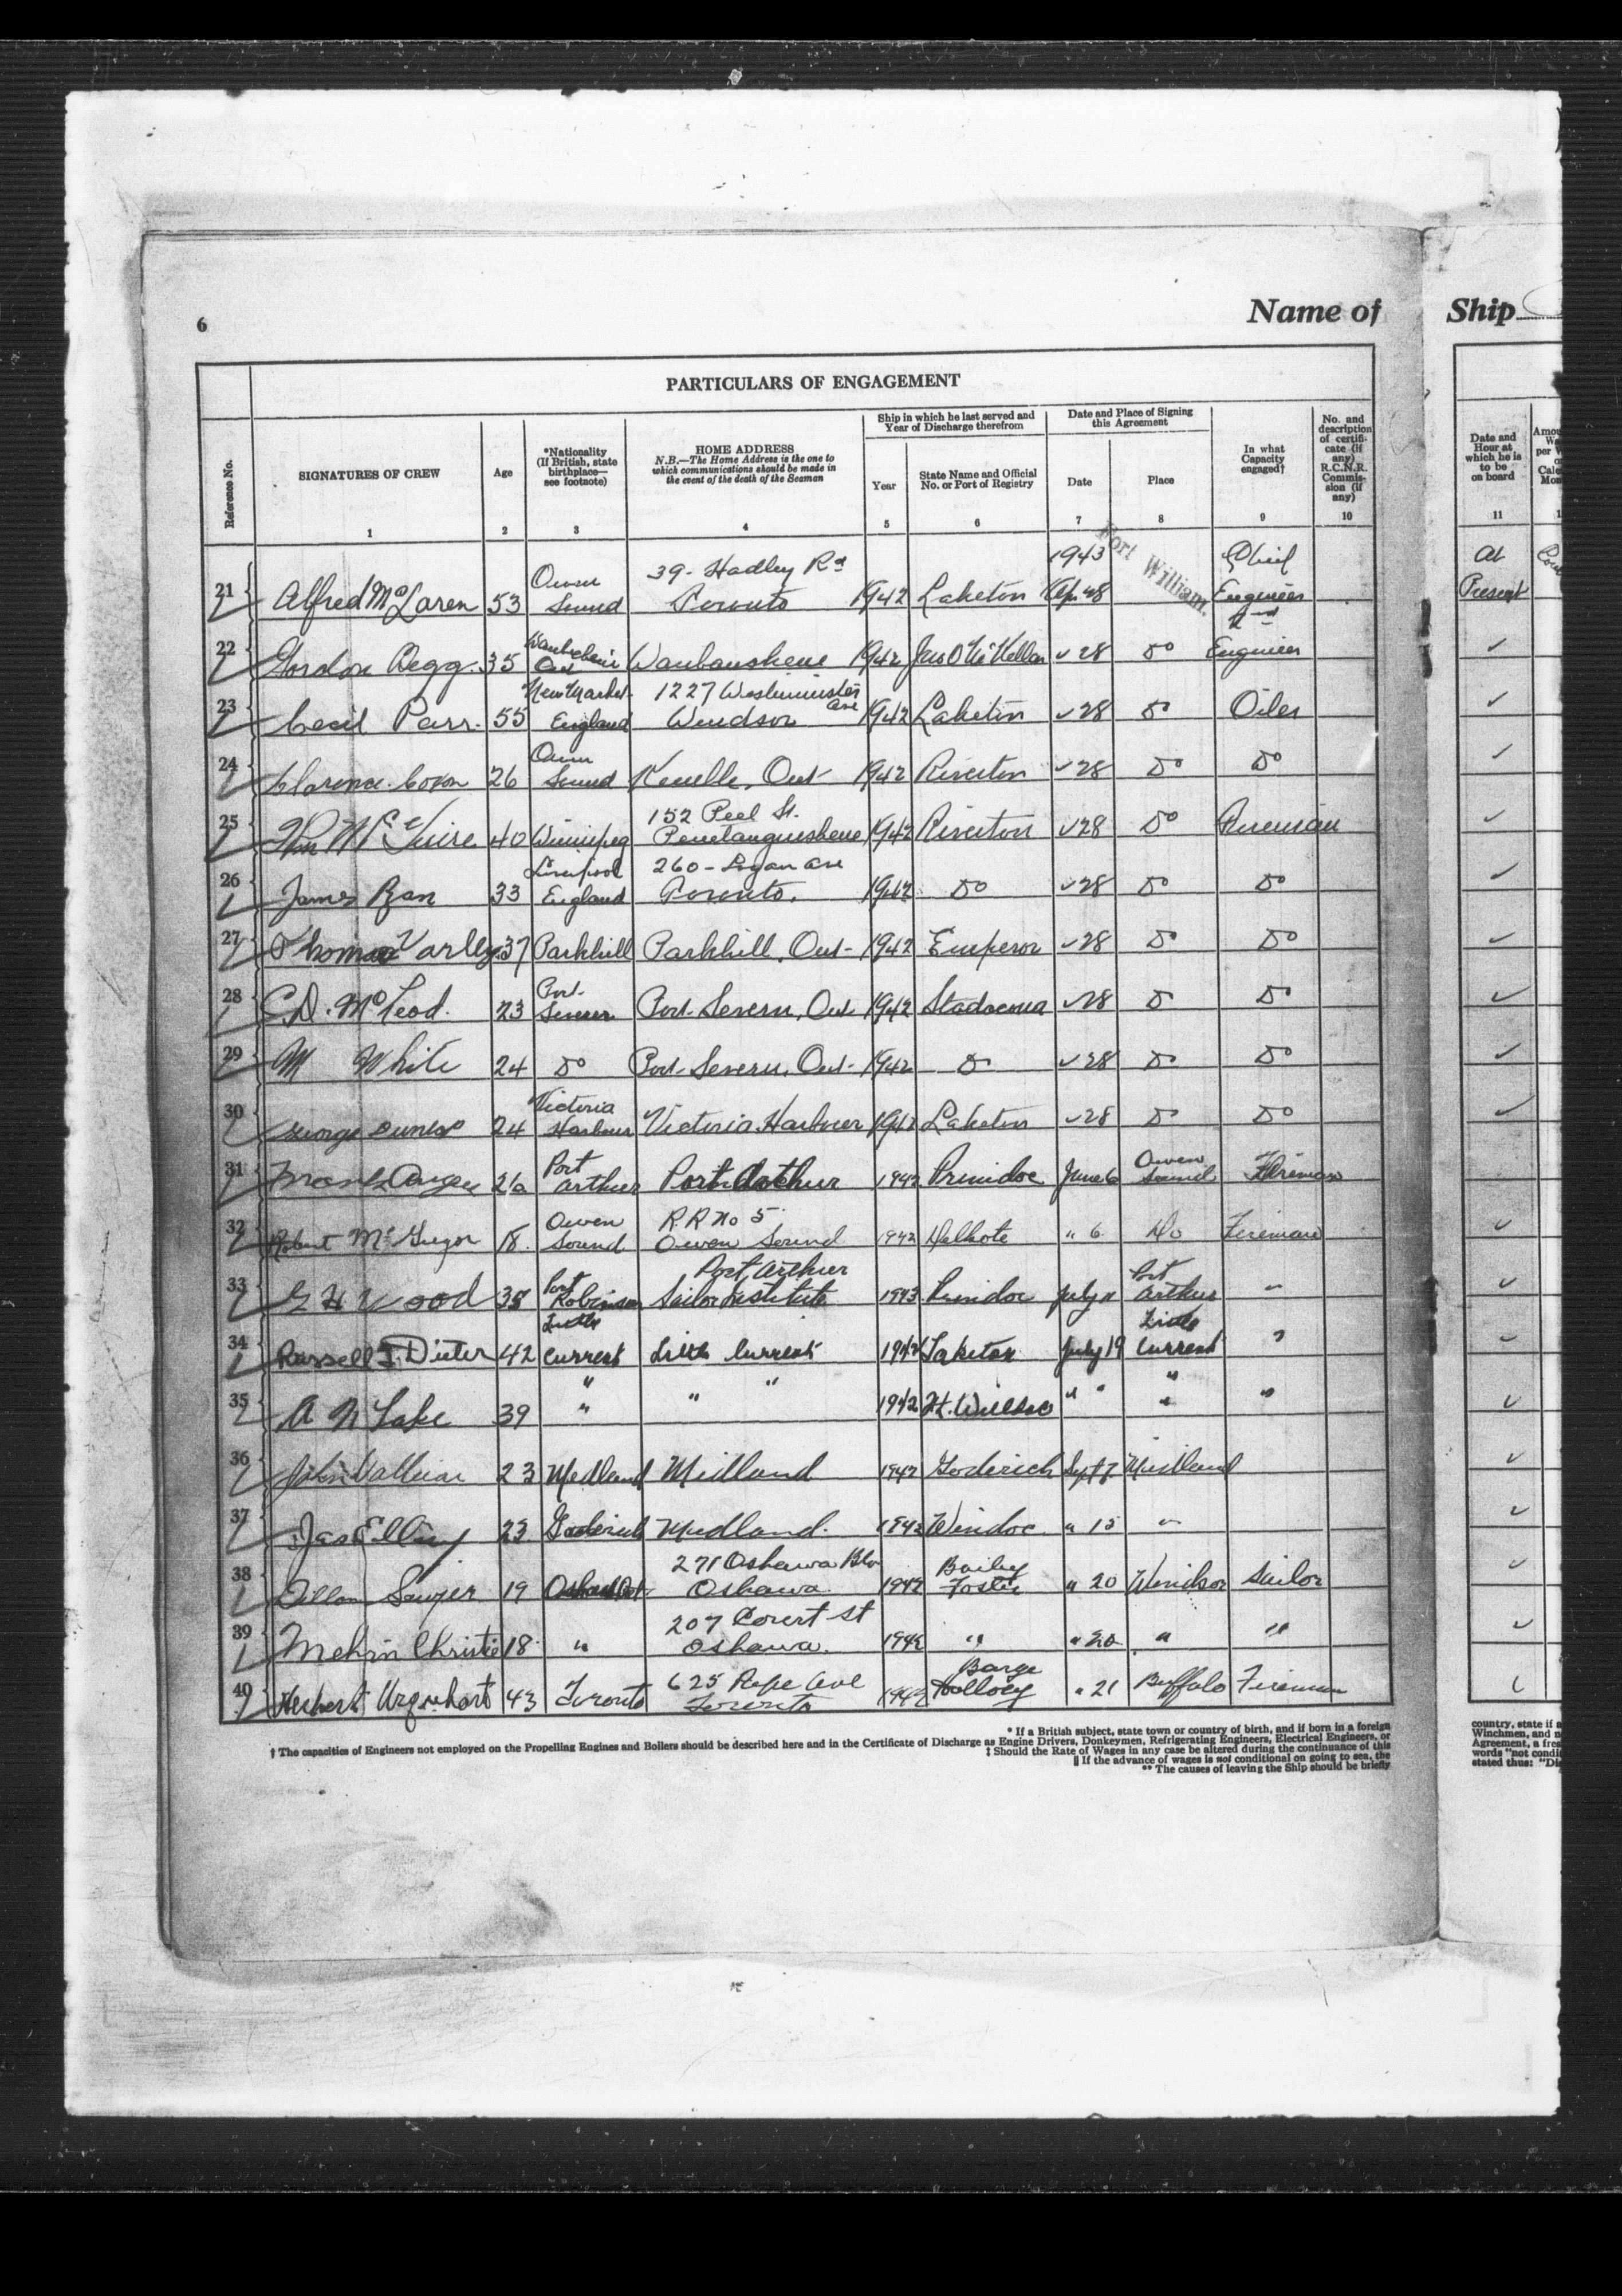 6
Name of
Ship
PARTICULARS OF ENGAGEMENT
Reference No.
SIGNATURES OF CREW
1
Age
2
*Nationality
(If British, state
birthplace—
see footnote)
3
HOME ADDRESS
N.B.—The Home Address is the one to
which communications should be made in
the event of the death of the Seaman
4
Ship in which he last served and
Year of Discharge therefrom
Year
5
State Name and Official
No. or Port of Registry
6
Date and Place of Signing
this Agreement
Date
7
Place
8
In what
Capacity
engaged†
9
No. and
description
of certifi-
cate (if
any)
R.C.N.R.
Commis-
sion (if
any)
10
Date and
Hour at
which he is
to be
on board
11
21 Alfred McLaren 53 Owen Sound 39 - Hadley Rd Toronto 1942 Laketon 1943 Ap. 28 Fort William. Chief Engineer At Present
22 Gordon 35 Waubaushene 1942 Jno O McKellar " 28 Do 2nd Engineer
23 Cecil Parr. 55 New Market England 1227 Westminster Ave Windsor 1942 Laketon " 28 Do Oiler
24 Clarence Coxon 26 Owen Sound Ont 1942 Riverton " 28 Do Do
25 Wm McGuire 40 Winnipeg 152 Peel St. Penetanguishene 1942 Riverton " 28 Do Fireman
26 James 33 Liverpool England 260 - Logan Ave Toronto. 1942 Do " 28 Do Do
27 Thomas Varley 37 Parkhill Parkhill, Ont - 1942 Emperor " 28 Do Do
28 C.D. McLeod. 23 Port Severn Port Severn, Ont 1942 Stadacona " 28 Do Do
29 M White 24 Do Port Severn, Ont - 1942 Do " 28 Do Do
30 George 24 Victoria Harbour Victoria Harbour 1942 Laketon " 28 Do Do
31 Frank 26 Port Arthur Port Arthur 1942 Prindoc June 6 Owen Sound Fireman
32 Robert McGregor 18. Owen Sound R R No 5 Owen Sound 1942 " 6 Do Fireman
33 G H Wood 38 Port Robinson Port Arthur Sailor Institute 1943 Prindoc July 11 Port Arthur "
34 Russell J. Dieter 42 Little Current Little Current 1942 Laketon July 19 Little Current "
35 A N Lake 39 " " " 1942 " " " "
36 John 23 Midland Midland 1942 Goderich Sept 7 Midland
37 Jas 23 Goderich Midland. 1942 Windoc " 15 "
38 19 271 Oshawa Blv Oshawa 1942 Bailey Foster " 20 Windsor Sailor
39 Melvin Christie 18 " 207 Court St Oshawa. 1942 " " 20 " "
40 Herbert Urquhart 43 Toronto 625 Pape Ave Toronto 1942 Barge " 21 Buffalo Fireman
* If a British subject, state town or country of birth, and if born in a foreign
† The capacities of Engineers not employed on the Propelling Engines and Boilers should be described here and in the Certificate of Discharge as Engine Drivers, Donkeymen, Refrigerating Engineers, Electrical Engineers, or
‡ Should the Rate of Wages in any case be altered during the continuance of this
‖ If the advance of wages is not conditional on going to sea, the
** The causes of leaving the Ship should be briefly
country, state if a
Winchmen, and
Agreement, a fres
words "not condi
stated thus: "Di